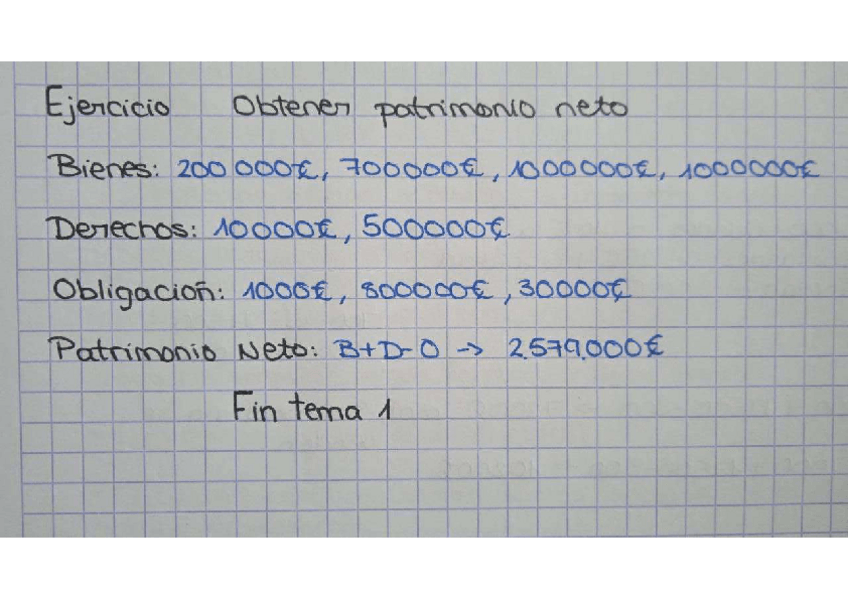 Ejercicio Obtener patrimonio neto
Bienes: 200 000€, 700000€, 1000000€, 1000000€
Derechos: 10000€, 500000€
Obligacioñ: 1000€, 800000€, 30000€
Patrimonio Neto: B+D-O -> 2.579.000€
Fin tema 1